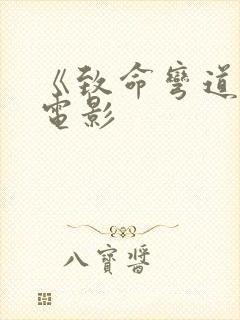 《致命彎道
電影
八寶醬